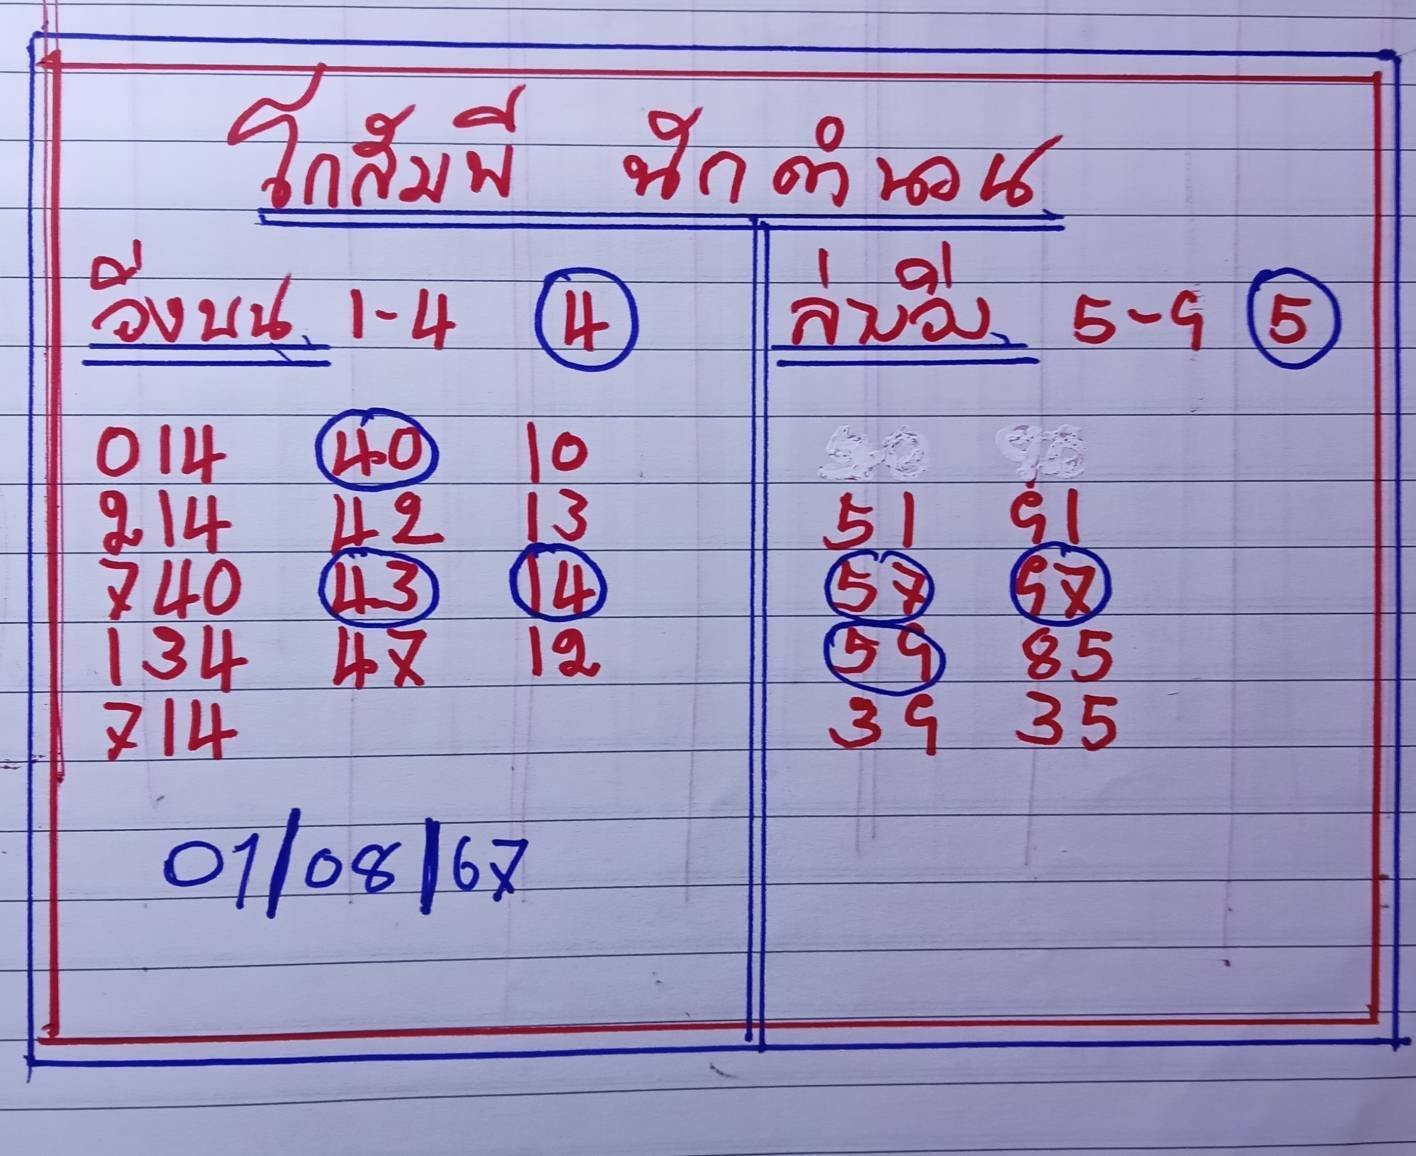 โกสัมพี นักคำนวน
วิ่งบน 1-4 4
014 40 10
214 42 13
740 43 14
134 47 12
714
01/08/67
ล่างวิ่ง 5-9 5
51 91
57 97
59 85
39 35